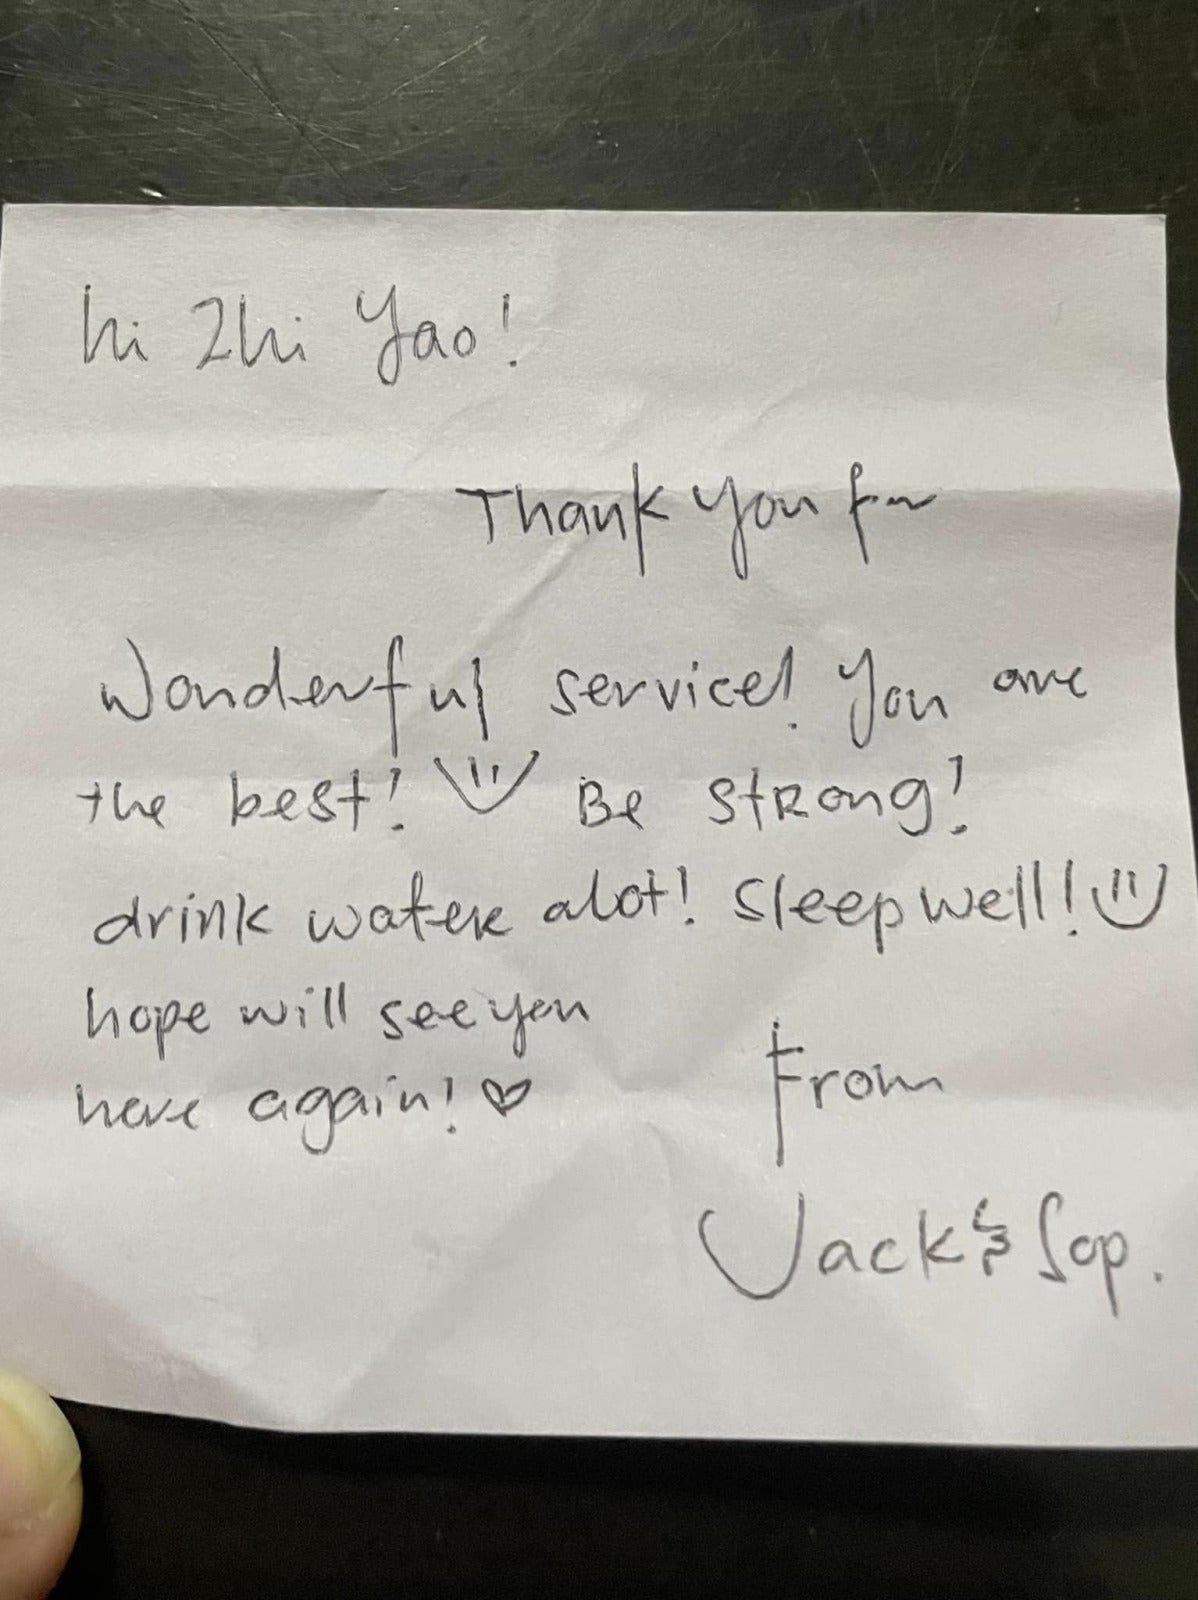 hi Zhi Yao!
Thank you for
Wonderful service! You are
the best! Be strong!
drink water alot! Sleep well!
hope will see you
here again! ♡
From
Jack & Sop.